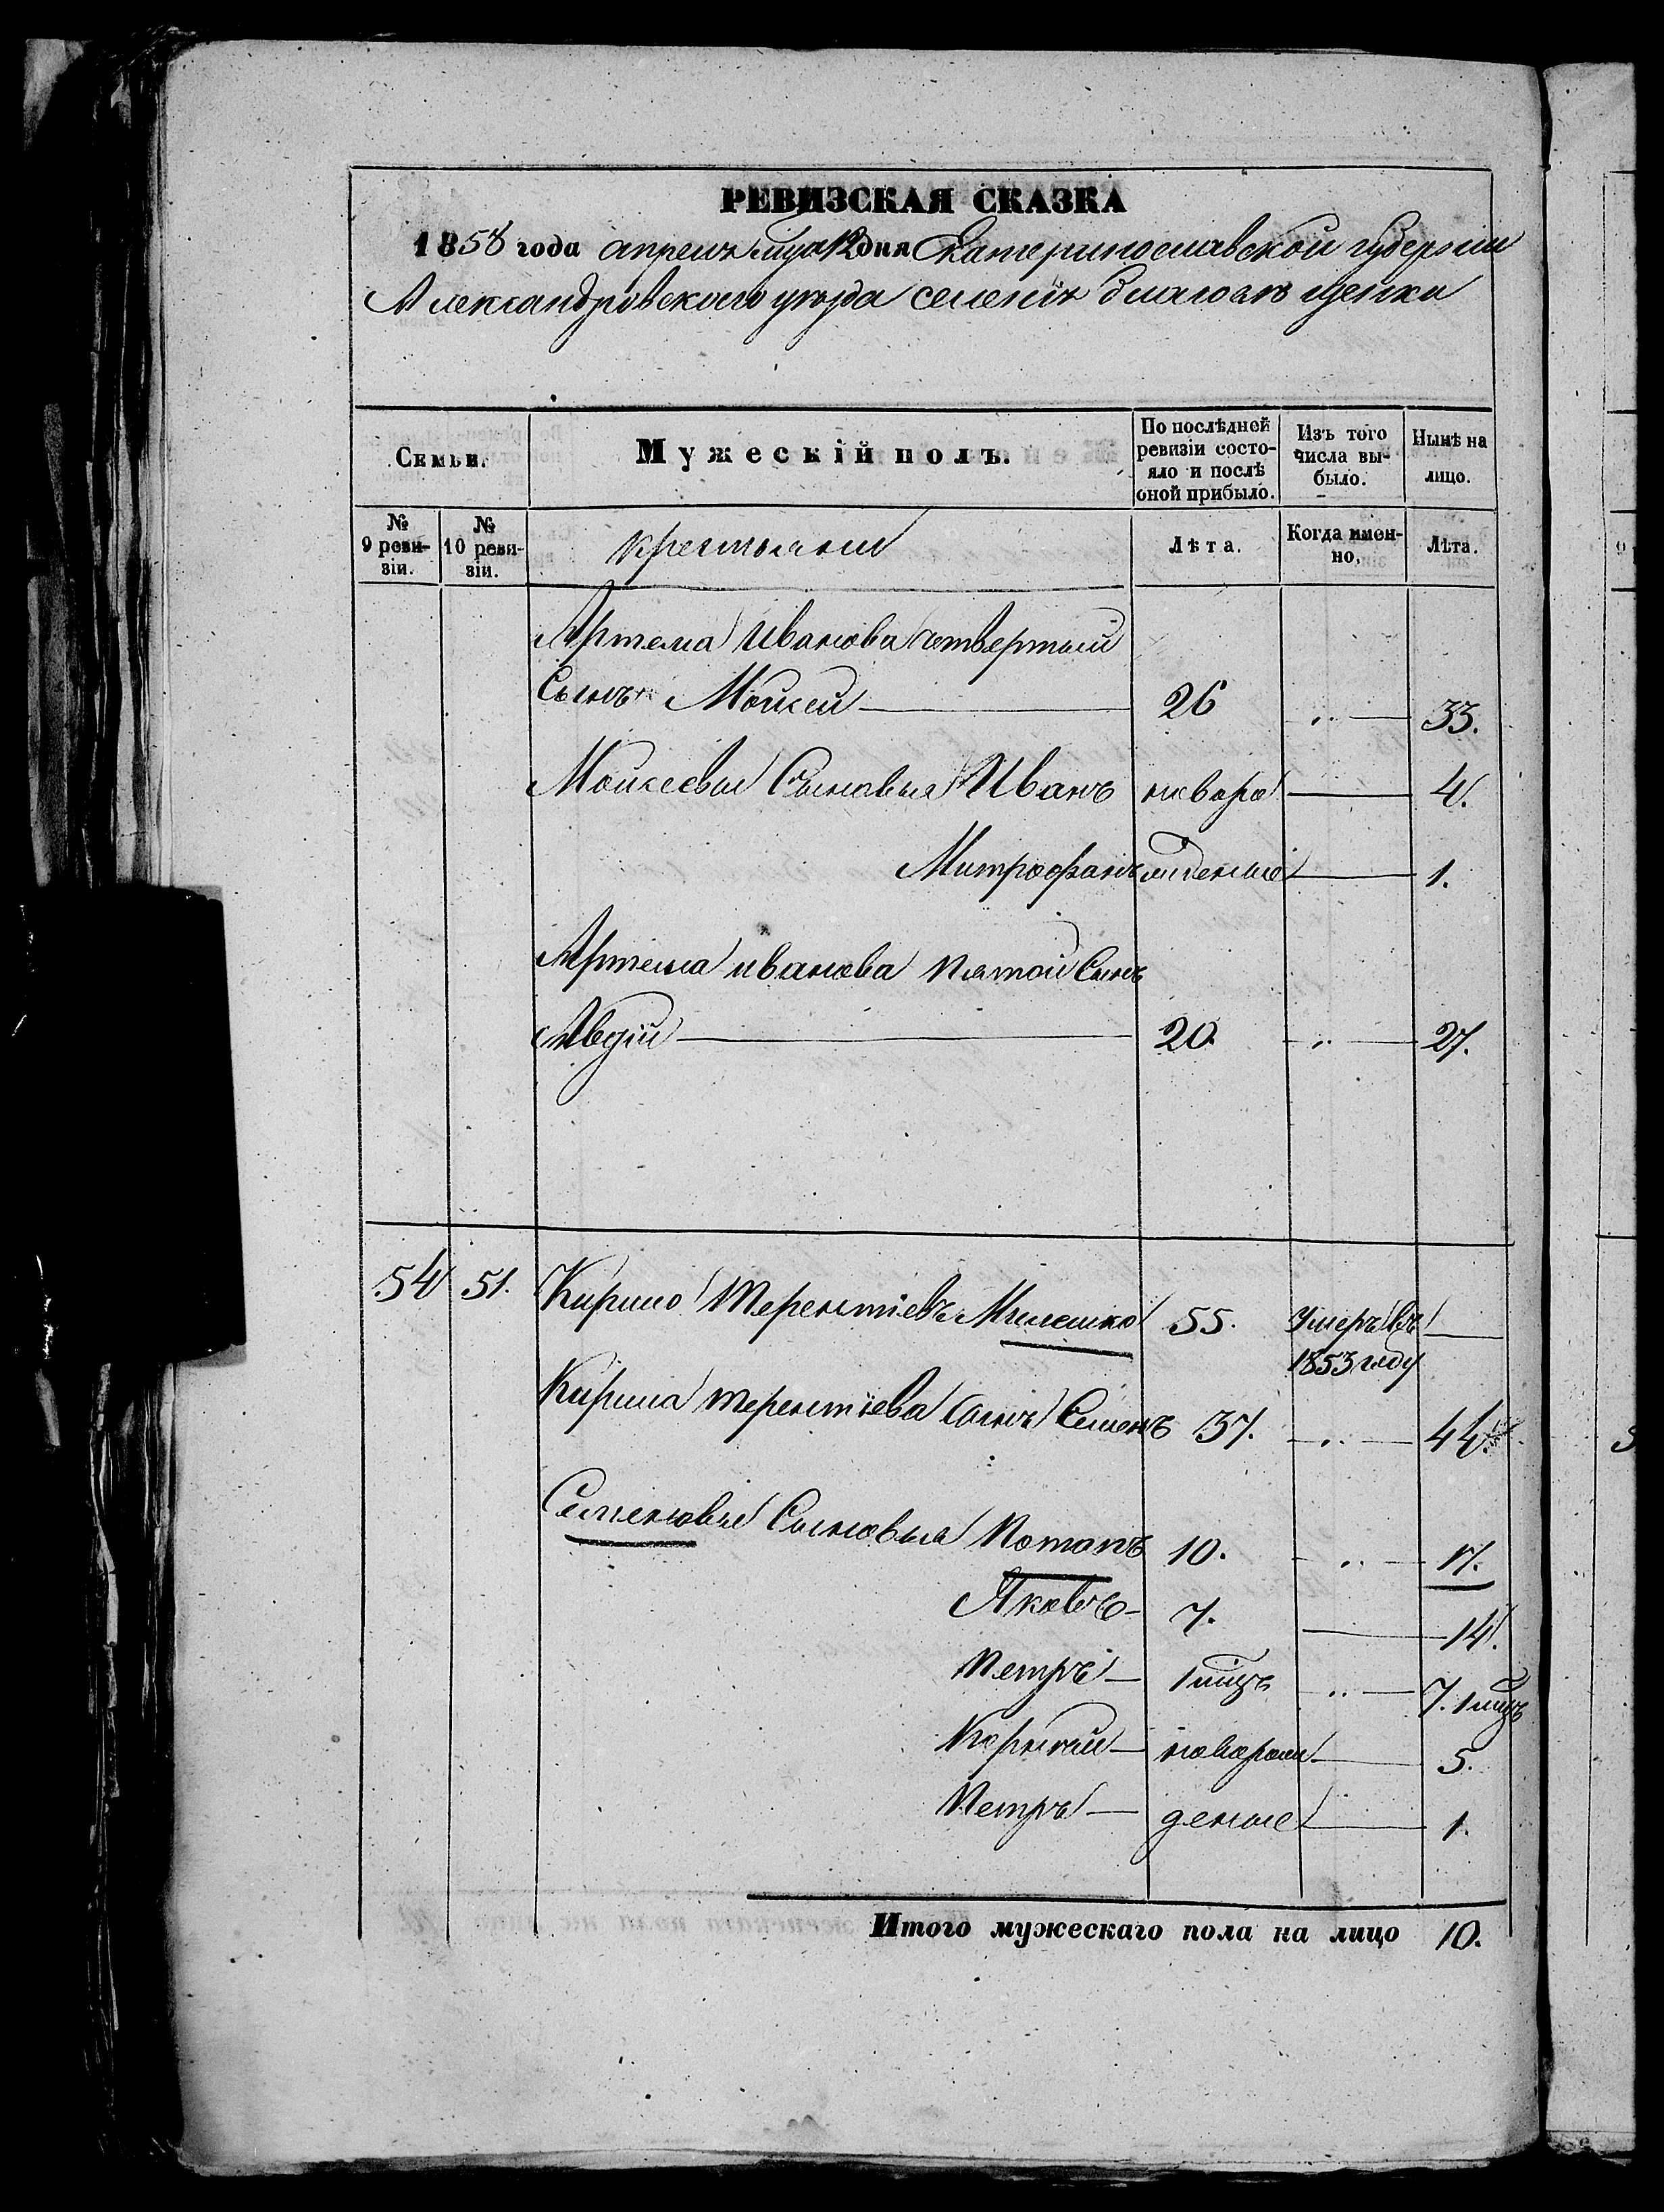 РЕВИЗСКАЯ СКАЗКА
1858 года апреля мца 12 дня Екатеринославской губернии
Александровского уезда селения благовещенки
Семьи.
Мужескій полъ.
По послѣдней ревизіи состояло и послѣ оной прибыло.
Изъ того числа выбыло.
Нынѣ на лицо.
№ 9 ревизіи.
№ 10 ревизіи.
крестьяни
Лѣта.
Когда именно.
Лѣта.
Артема Иванова четвертый
Сынъ Мойсей 26 33.
Мойсеевы Сыновья Иванъ новоро 4.
Митрофанъ жденые 1.
Артема иванова пятой Сынъ
Авдій 20. 27.
54 51. Кирило Терентіевъ Милешко 55. Умеръ въ
1853 году
Кирила терентіева Сынъ Семенъ 37. 44.
Семеновы Сыновья Потапъ 10. 17.
Яковъ 7. 14.
Петръ 1 мцъ 7. 1 мцъ
Корній новорож 5.
Петръ деные 1.
Итого мужескаго пола на лицо 10.